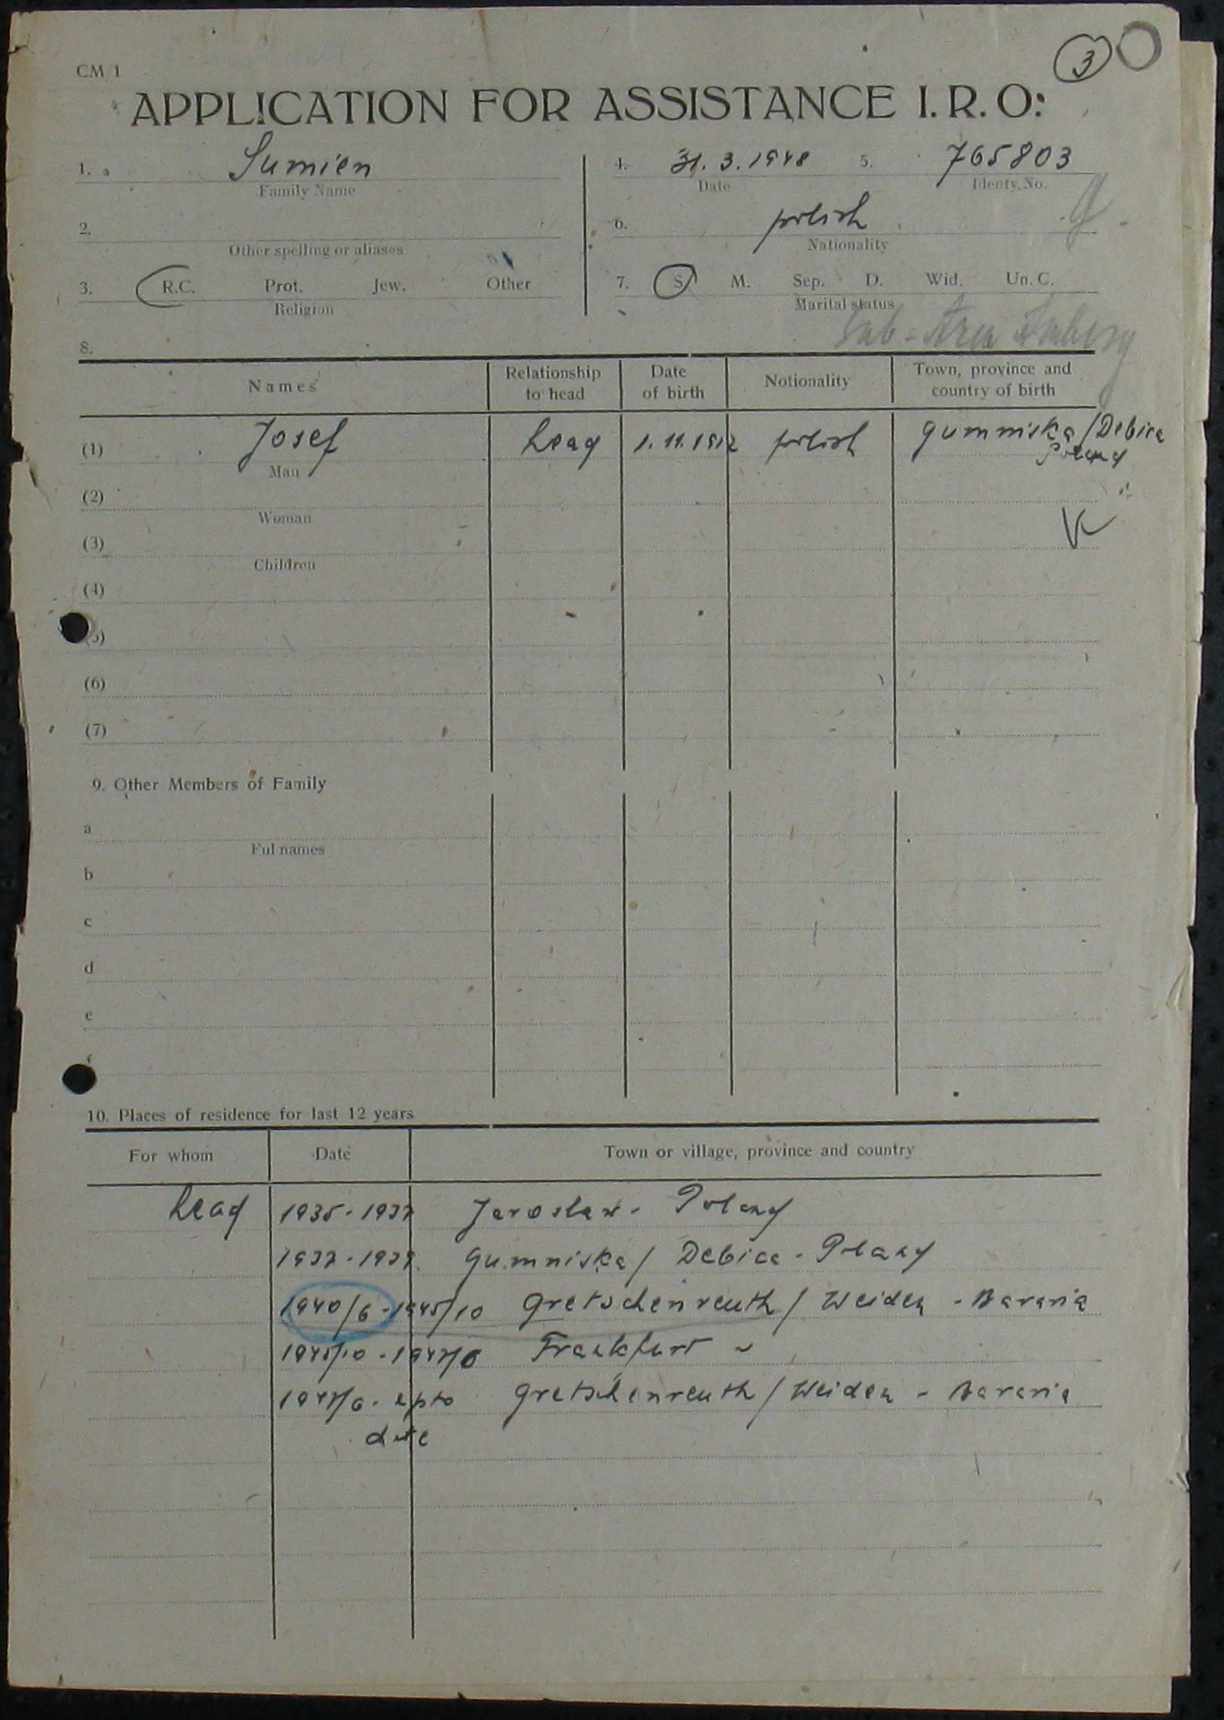 3
CM 1
APPLICATION FOR ASSISTANCE I. R. O:
1. Sumien
Family Name
4. 31. 3. 1948 5. 765803
Date Identy. No.
2.
Other spelling or aliases
6. polish
Nationality
3. R.C. Prot. Jew. Other
Religion
7. S M. Sep. D. Wid. Un. C.
Marital status
Sub-Area Amberg
8.
Names Relationship to head Date of birth Notionality Town, province and country of birth
(1) Josef head 1.11.1912 polish Gumniska/Debica
Man Poland
(2)
Woman
(3)
Children
(4)
(5)
(6)
(7)
9. Other Members of Family
a
Ful names
b
c
d
e
f
10. Places of residence for last 12 years
For whom Date Town or village, province and country
head 1935-1937 Jaroslaw - Poland
1937-1939 Gumniska/Debica - Poland
1940/6-1945/10 Gretschenreuth/Weiden - Bavaria
1945/10-1947/6 Frankfurt
1947/6- upto Gretschenreuth/Weiden - Bavaria
date